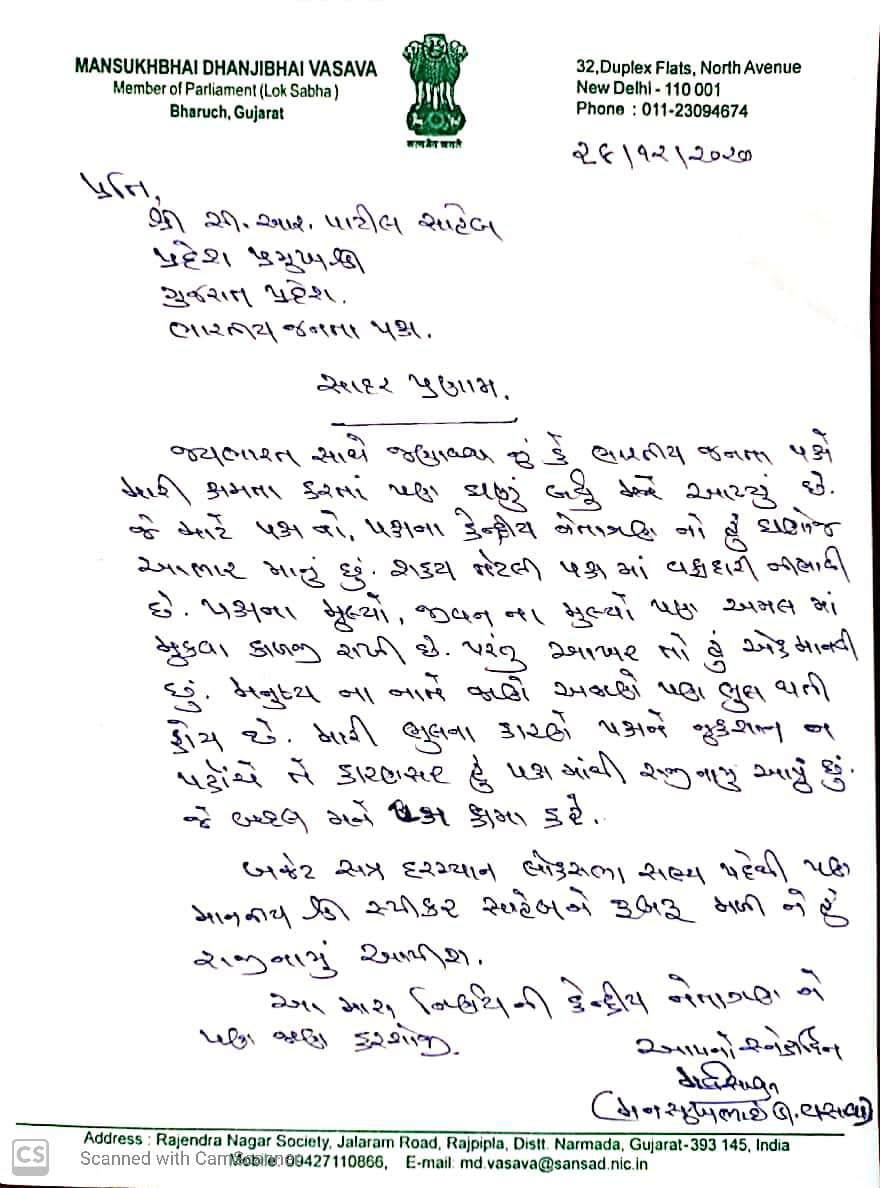 MANSUKHBHAI DHANJIBHAI VASAVA
Member of Parliament (Lok Sabha)
Bharuch, Gujarat
सत्यमेव जयते
32,Duplex Flats, North Avenue
New Delhi - 110 001
Phone : 011-23094674
૨૮/૧૨/૨૦૨૦
પ્રતિ,
શ્રી સી. આર. પાટીલ સાહેબ
પ્રદેશ પ્રમુખશ્રી
ગુજરાત પ્રદેશ.
ભારતીય જનતા પક્ષ.
સાદર પ્રણામ.
જયભારત સાથે જણાવવાનું કે ભારતીય જનતા પક્ષે
મારી ક્ષમતા કરતાં પણ ઘણું બધું મને આપ્યું છે.
જે માટે પક્ષ નો, પક્ષના કેન્દ્રીય નેતાગણ નો હું ઘણોજ
આભાર માનું છું. શક્ય એટલી પક્ષ માં વફાદારી નીભાવી
છે. પક્ષના મુલ્યો, જીવન ના મુલ્યો પણ અમલ માં
મુકવા કાળજી રાખી છે. પરંતુ આખરે તો હું એક માનવી
છું. મનુષ્ય ના નાતે જાણે અજાણે પણ ભુલ થતી
હોય છે. મારી ભુલના કારણે પક્ષને નુકશાન ન
પહોંચે તે કારણસર હું પક્ષ માંથી રાજીનામું આપું છું.
જે બદલ મને પક્ષ ક્ષમા કરે.
બજેટ સત્ર દરમ્યાન લોકસભા સભ્ય પદેથી પણ
માનનીય શ્રી સ્પીકર સાહેબને રૂબરૂ મળી ને હું
રાજીનામું આપીશ.
આ મારા નિર્ણયની કેન્દ્રીય નેતાગણ ને
પણ જાણ કરશોજી.
આપનો સ્નેહાધિન
(મનસુખભાઈ ધ. વસાવા)
Address : Rajendra Nagar Society, Jalaram Road, Rajpipla, Distt. Narmada, Gujarat-393 145, India
Mobile: 09427110866, E-mail: md.vasava@sansad.nic.in
CS Scanned with CamScanner